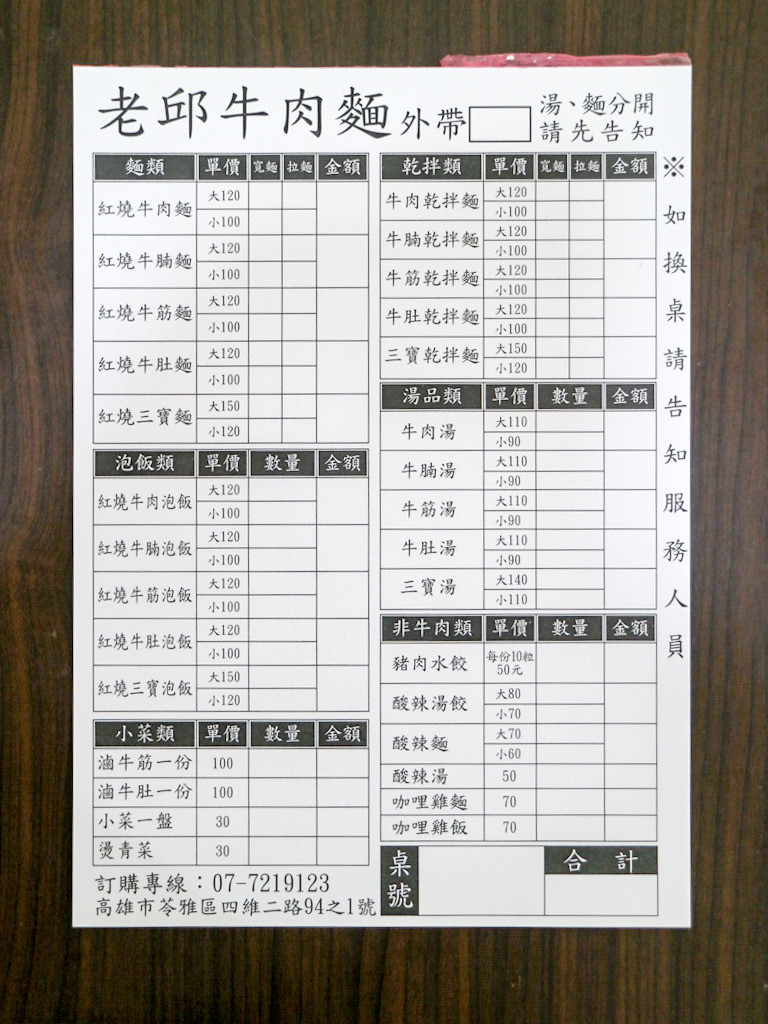 老邱牛肉麵 外帶
湯、麵分開
請先告知
麵類 單價 寬麵 拉麵 金額
紅燒牛肉麵 大120
小100
紅燒牛腩麵 大120
小100
紅燒牛筋麵 大120
小100
紅燒牛肚麵 大120
小100
紅燒三寶麵 大150
小120
泡飯類 單價 數量 金額
紅燒牛肉泡飯 大120
小100
紅燒牛腩泡飯 大120
小100
紅燒牛筋泡飯 大120
小100
紅燒牛肚泡飯 大120
小100
紅燒三寶泡飯 大150
小120
小菜類 單價 數量 金額
滷牛筋一份 100
滷牛肚一份 100
小菜一盤 30
燙青菜 30
訂購專線：07-7219123
高雄市苓雅區四維二路94之1號
乾拌類 單價 寬麵 拉麵 金額
牛肉乾拌麵 大120
小100
牛腩乾拌麵 大120
小100
牛筋乾拌麵 大120
小100
牛肚乾拌麵 大120
小100
三寶乾拌麵 大150
小120
湯品類 單價 數量 金額
牛肉湯 大110
小90
牛腩湯 大110
小90
牛筋湯 大110
小90
牛肚湯 大110
小90
三寶湯 大140
小110
非牛肉類 單價 數量 金額
豬肉水餃 每份10粒
50元
酸辣湯餃 大80
小70
酸辣麵 大70
小60
酸辣湯 50
咖哩雞麵 70
咖哩雞飯 70
桌號 合計
※如換桌請告知服務人員